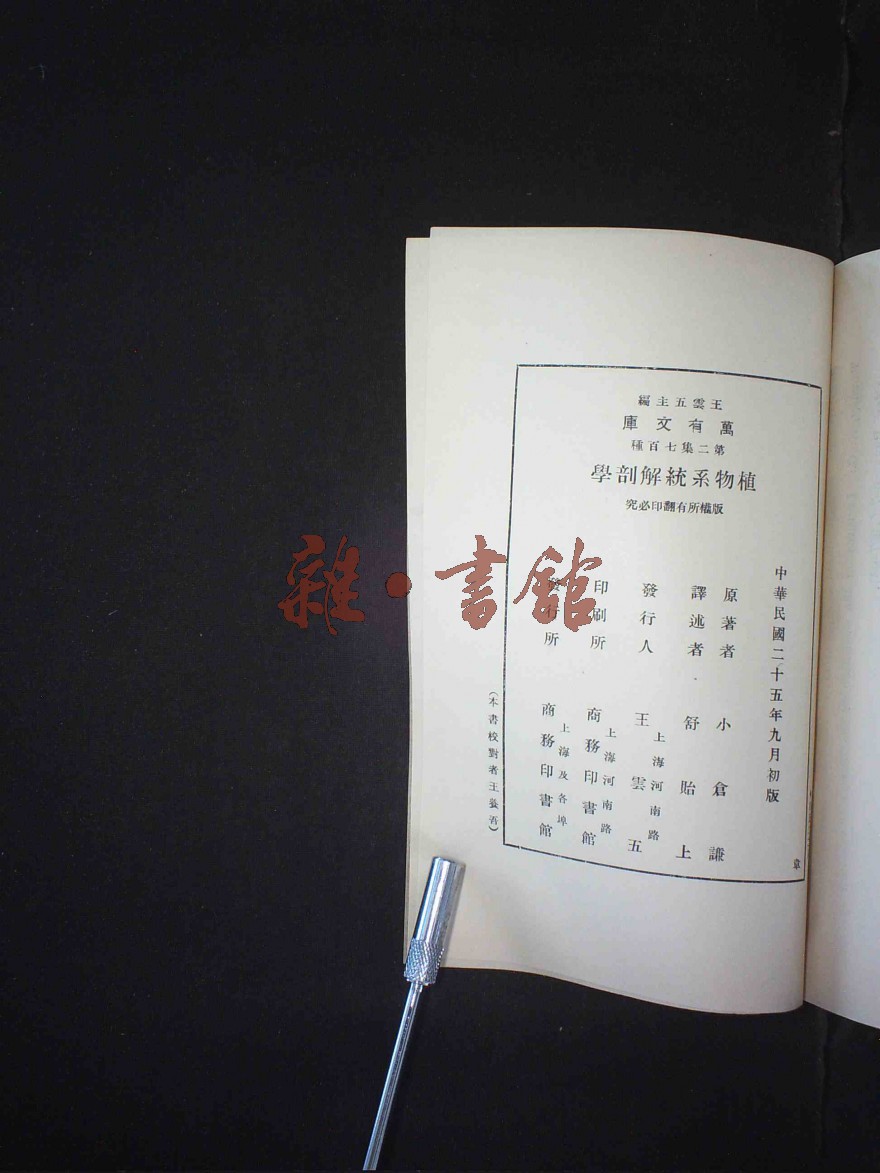 王雲五主編
萬有文庫
第二集七百種
植物系統解剖學
版權所有翻印必究
中華民國二十五年九月初版
原著者 小倉謙
譯述者 舒貽上
發行人 王雲五
上海河南路
印刷所 商務印書館
上海河南路
發行所 商務印書館
上海及各埠
(本書校對者王養吾)
章
雜·書館